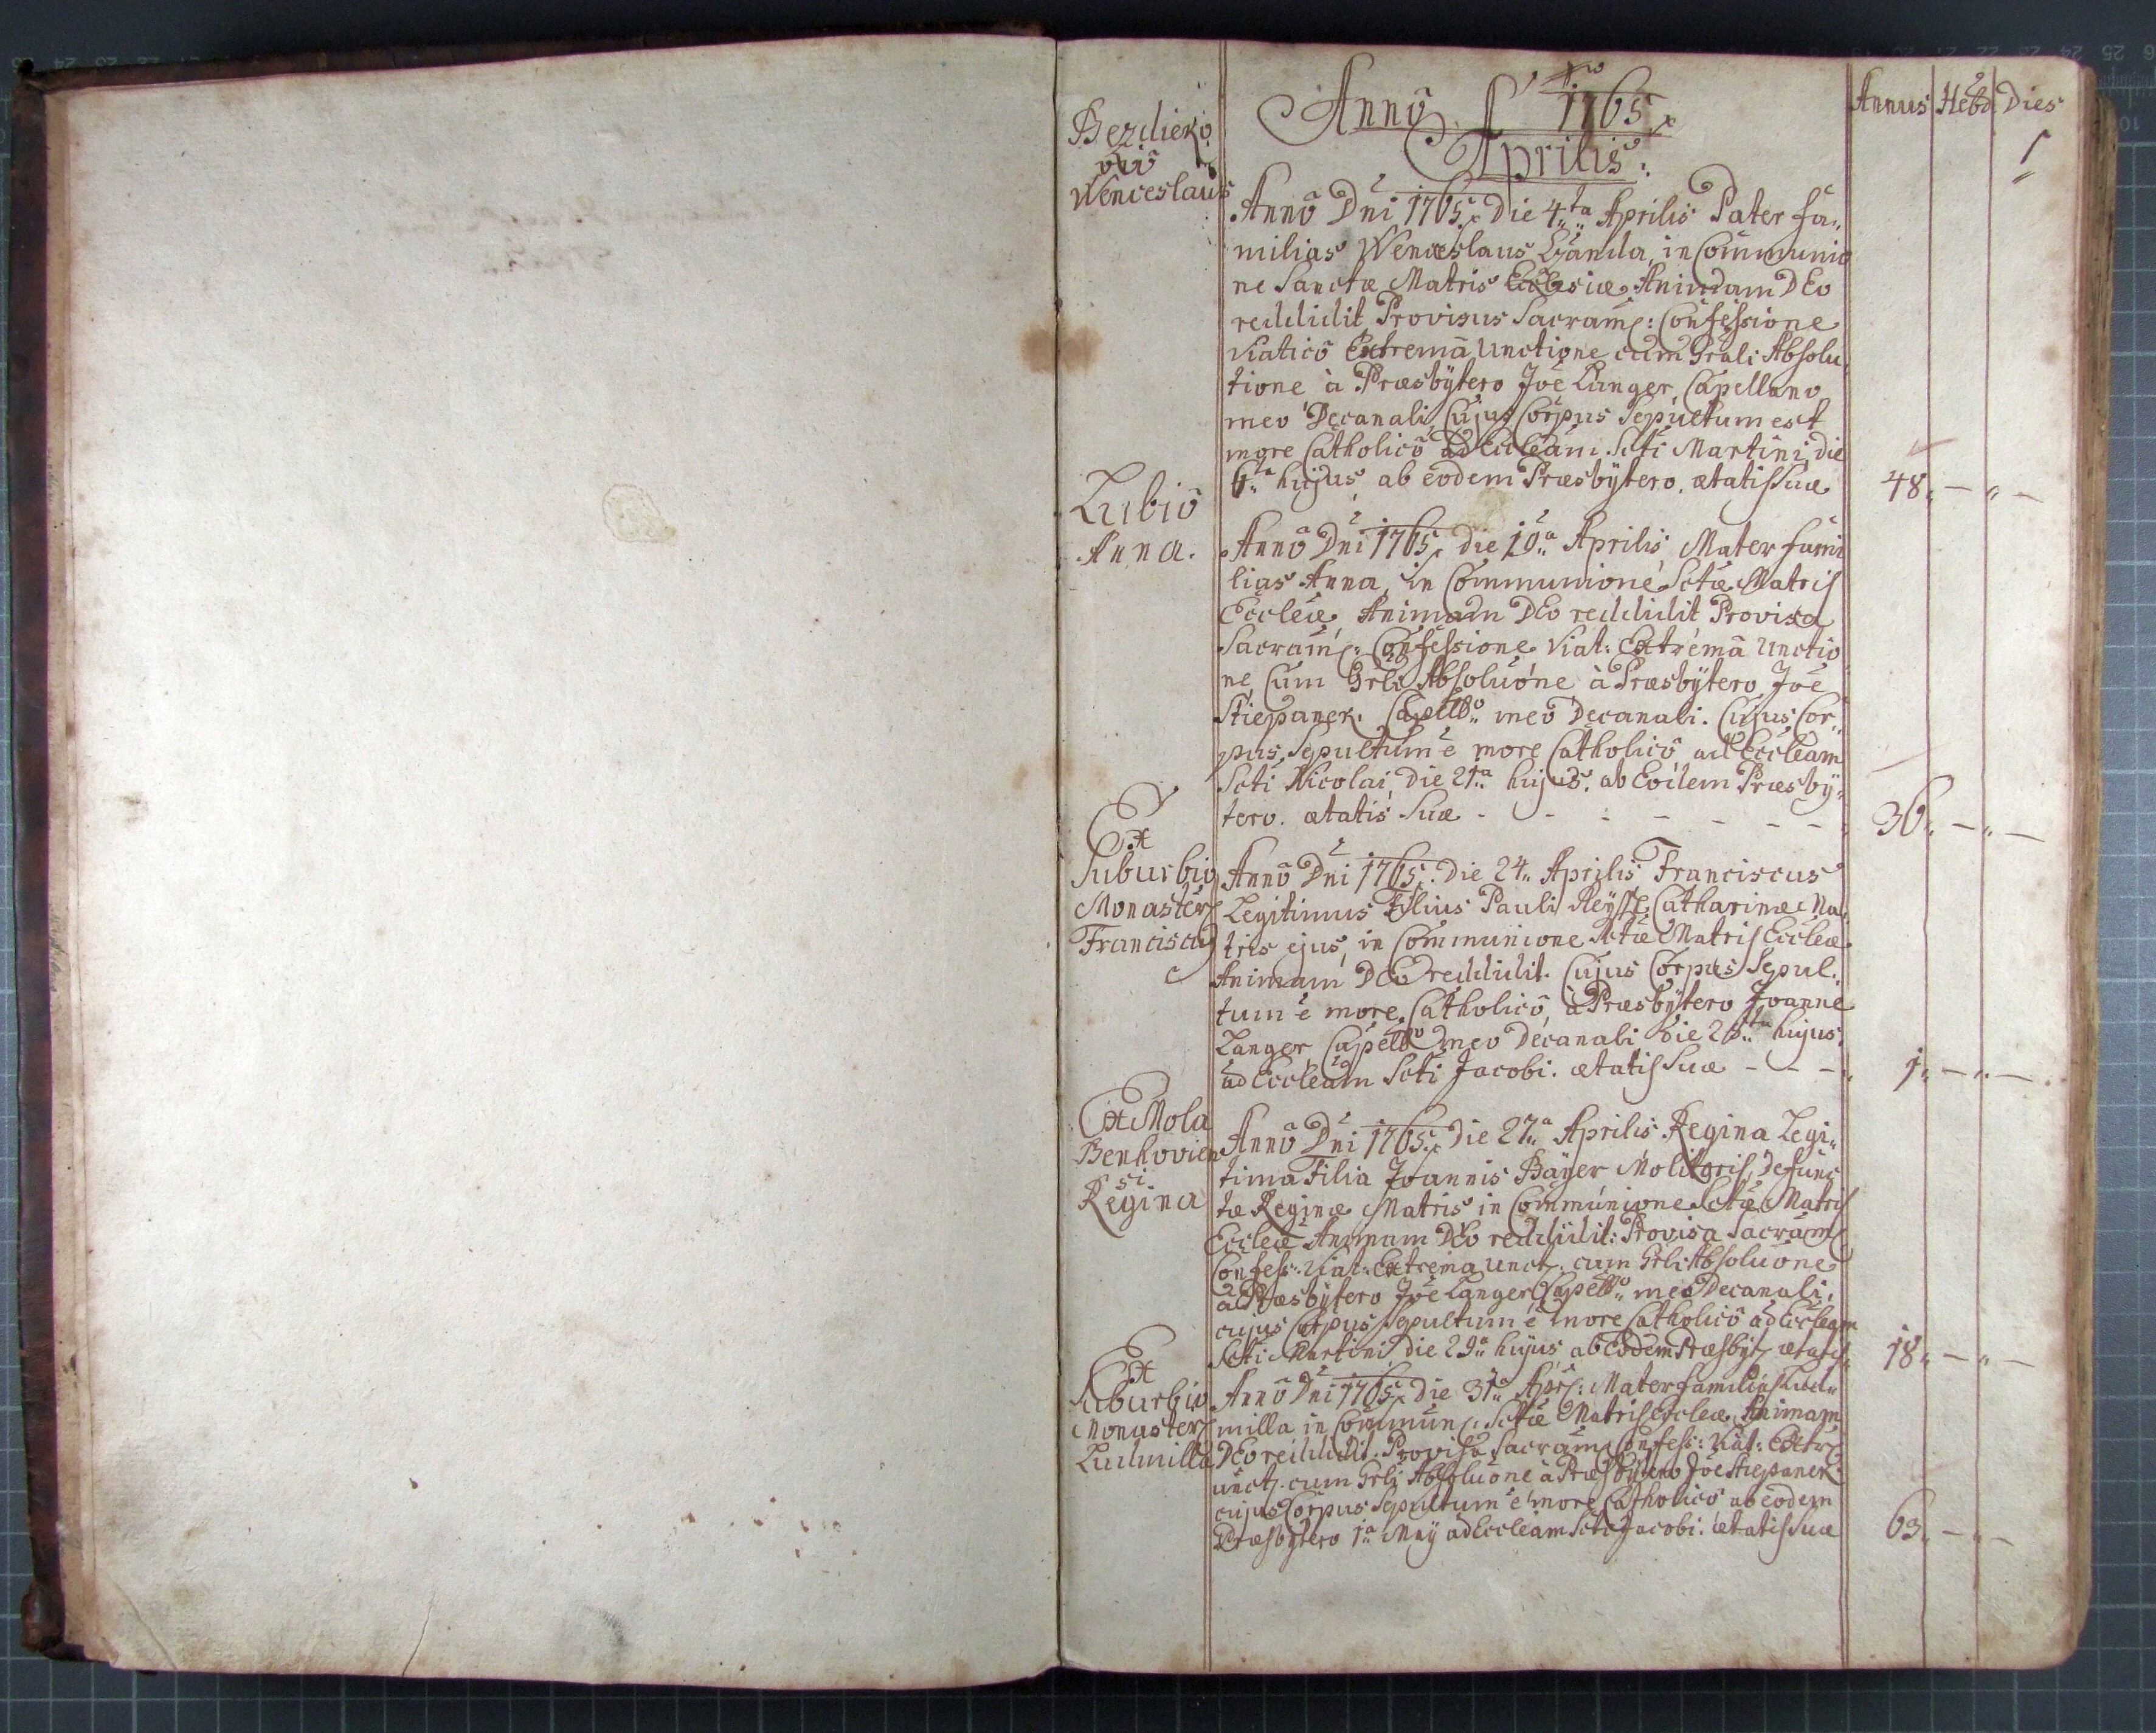 Annus Hebd. Dies
1
Anno 1765
Aprilis.
Bezdieko
vio
Wenceslaus
Anno Dni 1765. Die 4ta Aprilis Pater fa„
milias Wenceslaus in Communio
ne Sanctæ Matris Ecclesiæ Animam DEo
reddidit Provisus Sacram: Confessione
Viaticô Extremâ Unctione cum Grali Absolu
tione à Præsbÿtero Joe Langer, Capellano
meo Decanali, Cujus Corpus Sepultum est
more Catholicô ad Eccleam Scti Martini, die
6ta hujus, ab eodem Præsbÿtero. ætatis Suæ 48„ — „ —
Lubiô
Anna.
Anno Dni 1765. die 19a Aprilis Mater fami
lias Anna, in Communione Sctæ Matris
Eccleæ Animam DEo reddidit Provisa
Sacram: Confessione Viat: Extremâ Unctio
ne Cum Grli Absoluone à Præsbÿtero Joe
Stiepanek. Capello meo Decanali. Cujus Cor„
pus Sepultum e more Catholicô ad Eccleam
Scti Nicolai, Die 21a hujus. ab Eodem Præsbÿ„
tero. ætatis Suæ - - - - - - - 36„ — „ —
Ex
Suburbio
Monaster
Franciscus
Anno Dni 1765. Die 24„ Aprilis Franciscus
Legitimus Filius Pauli Catharinæ Ma„
tris ejus, in Communione Sctæ Matris Eccleæ
Animam DEo reddidit. Cujus Corpus Sepul:
tum e more Catholicô, à Præsbÿtero Joanne
Langer, Capello meo Decanali Die 26ta hujus.
ad Eccleam Scti Jacobi. ætatis Suæ - - - 1„ — „ —
Ex Mola
Benkovien
si
Regina
Anno Dni 1765. Die 27a Aprilis Regina Legi„
tima Filia Joannis Baÿer Molitoris, Defunc
tæ Reginæ Matris in Communione Sctæ Matris
Eccleæ Animam DEo reddidit: Provisa Sacram
Confess: Viat: Extrema Unct. cum Grli Absoluone
à Præsbÿtero Joe Langer Capello meo Decanali,
cujus Corpus Sepultum e more Catholicô ad Eccleam
Scti Martini die 29a hujus ab Eodem Præsbÿt. ætatis 18„ — „ —
Ex
Suburbio
Monaster
Ludmilla
Anno Dni 1765. die 31a Apr: Mater familias Lud„
milla in Commun. Sctæ Matris Eccleæ Animam
DEo reddidit. Provisa Sacram Confess: Viat: Extr
unct. cum Grli Absoluone à Præsbÿtero Joe Stiepanek
cujus Corpus Sepultum e more Catholicô ab eodem
Præsbÿtero 1a Maÿ ad Eccleam Scti Jacobi. ætatis Suæ 63„ — „ —